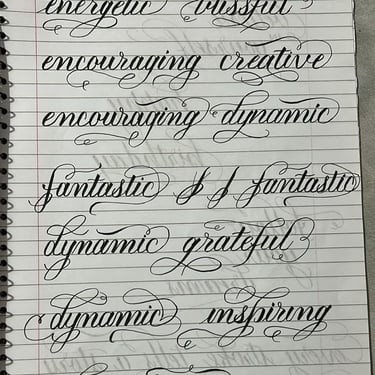 energetic blissful
encouraging creative
encouraging dynamic
fantastic f f fantastic
dynamic grateful
dynamic inspiring